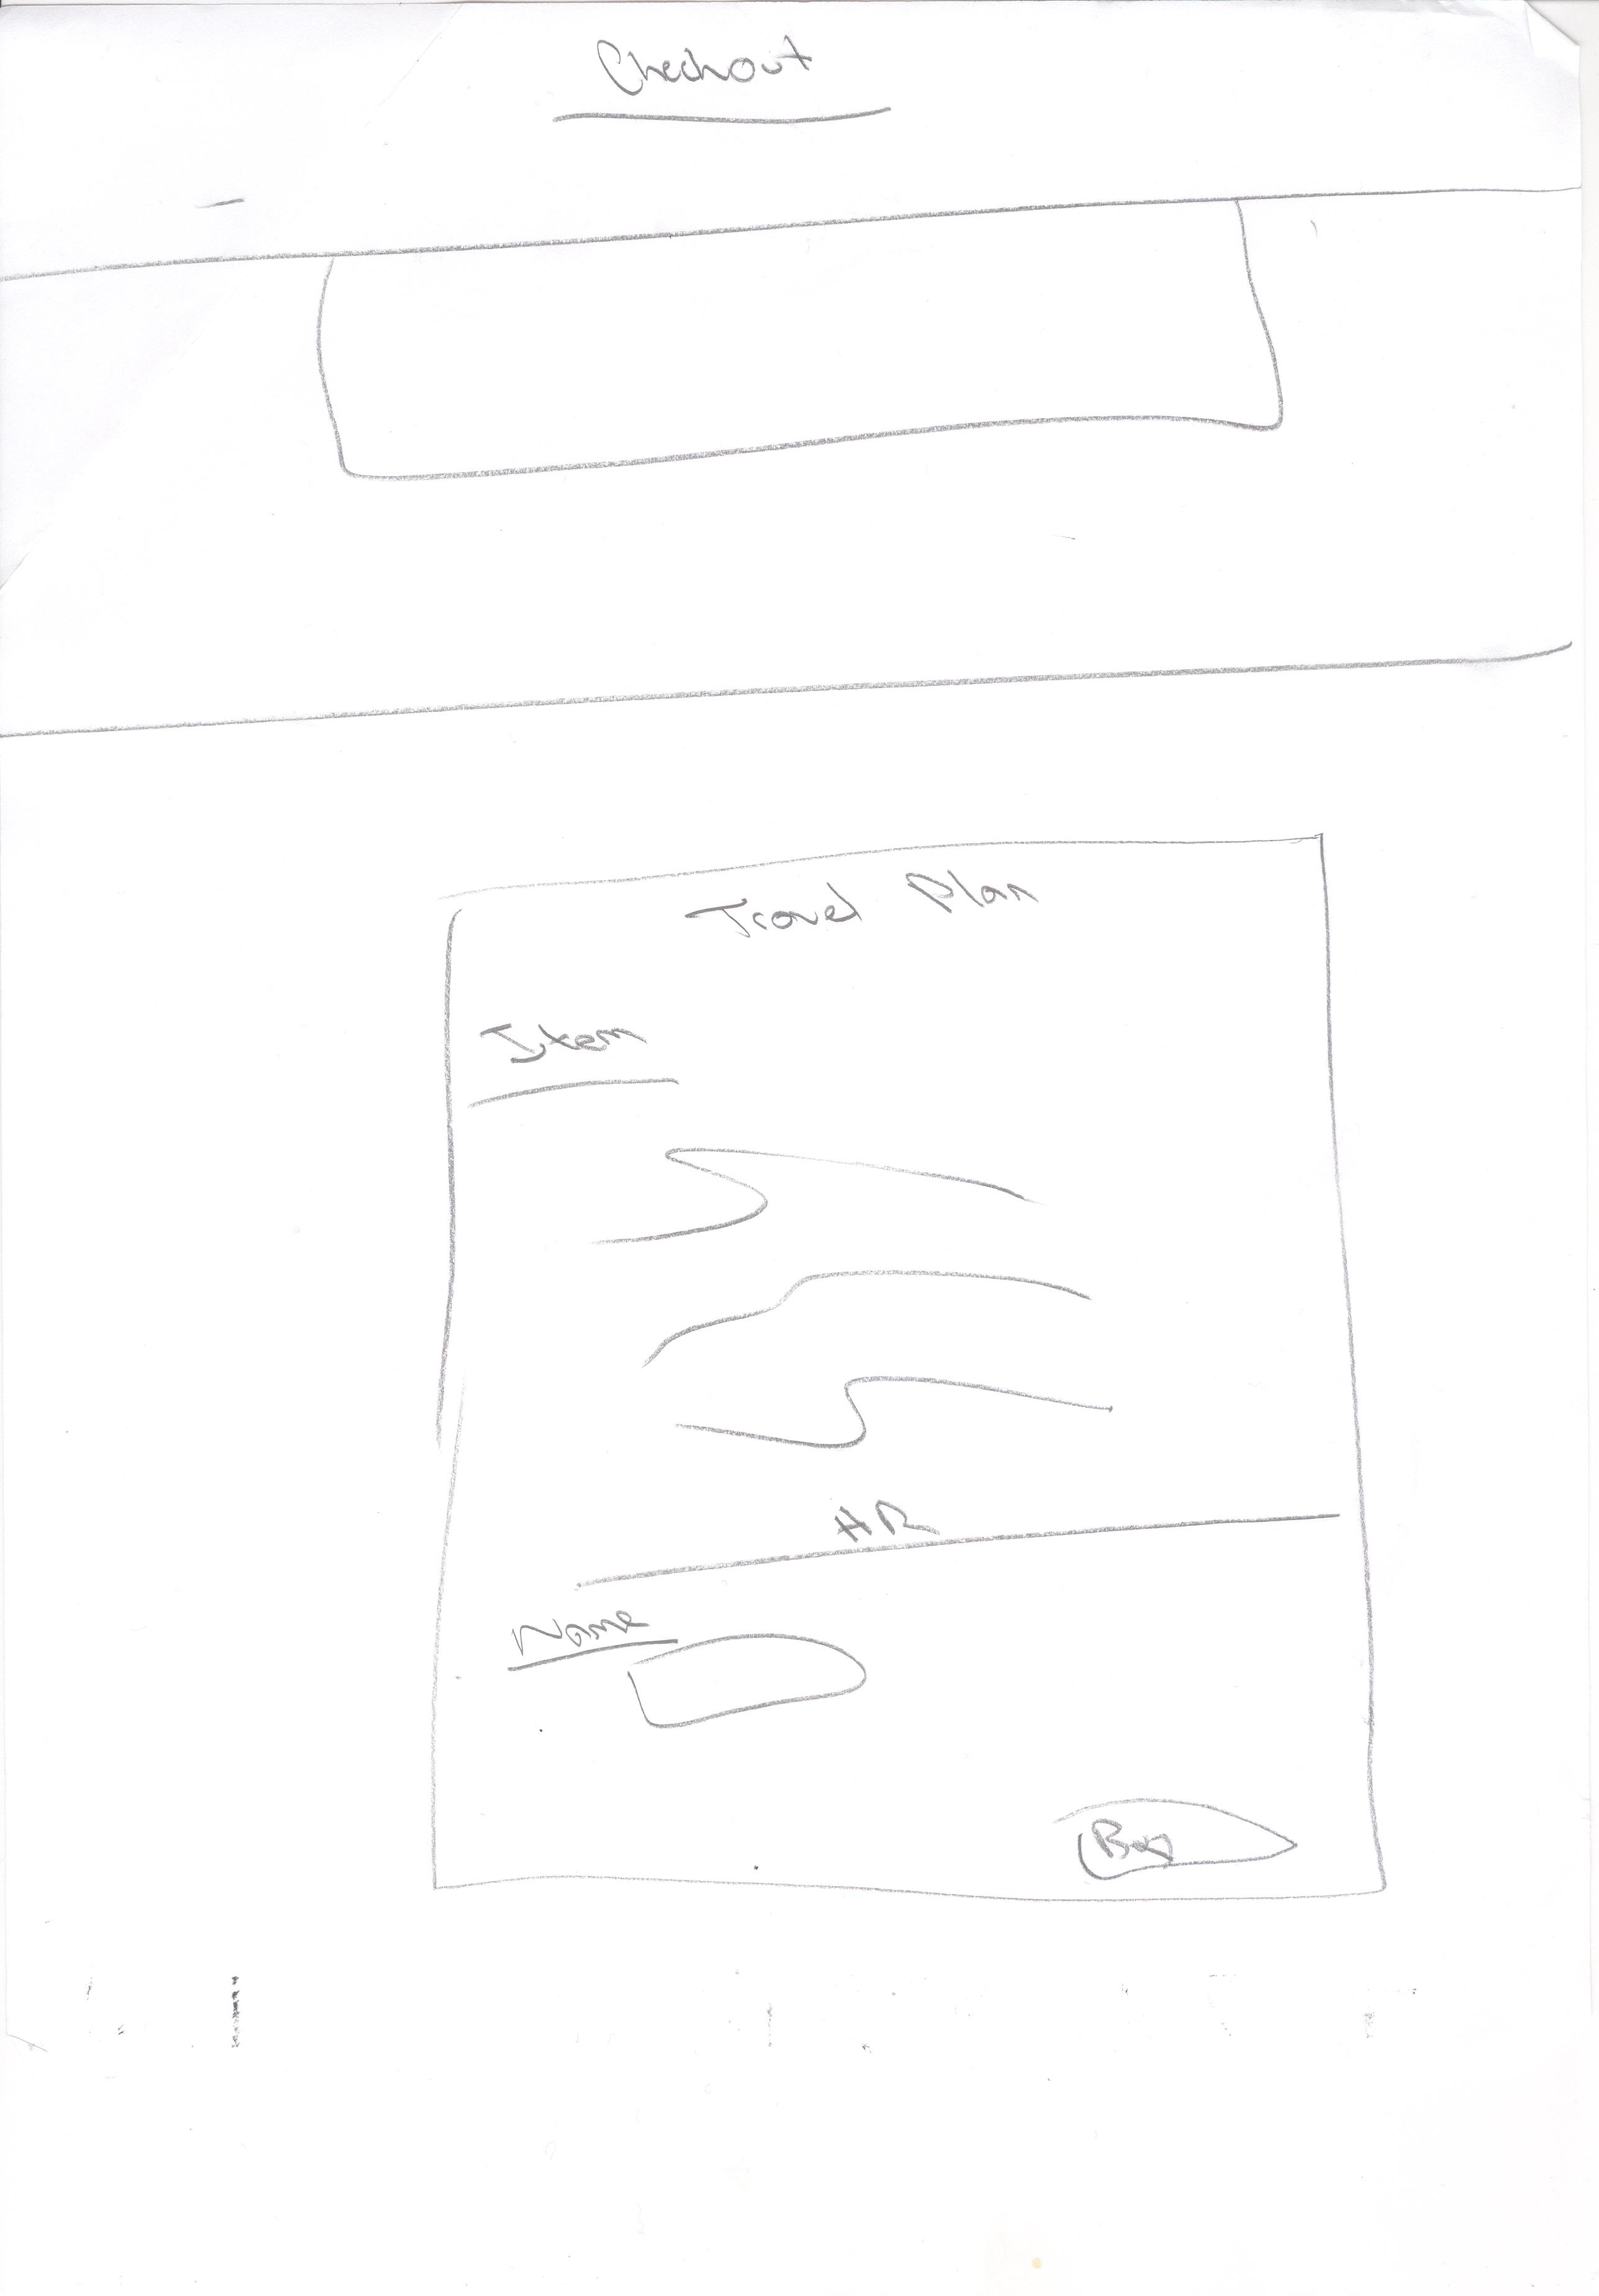 Checkout
Travel Plan
Item
HR
Name
Buy